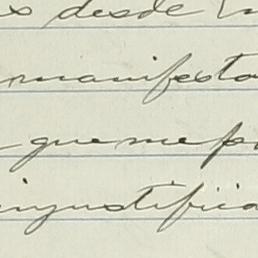 s desde
manifesta
que me p
injustifica